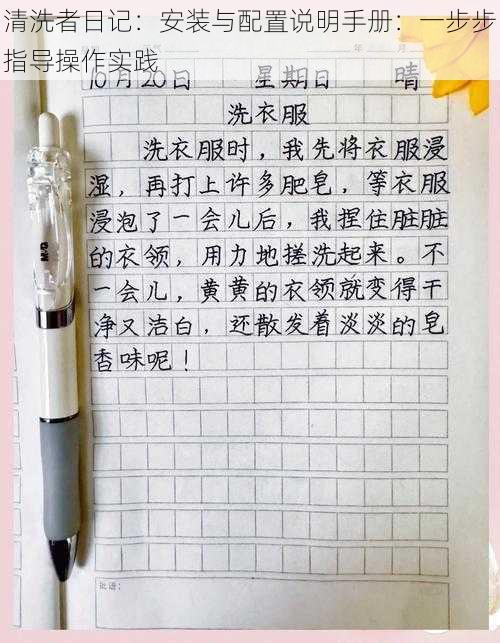 清洗者日记：安装与配置说明手册：一步步
指导操作实践
10月20日 星期日 晴
洗衣服
洗衣服时，我先将衣服浸
湿，再打上许多肥皂，等衣服
浸泡了一会儿后，我捏住脏脏
的衣领，用力地搓洗起来。不
一会儿，黄黄的衣领就变得干
净又洁白，还散发着淡淡的皂
香味呢！
批语：